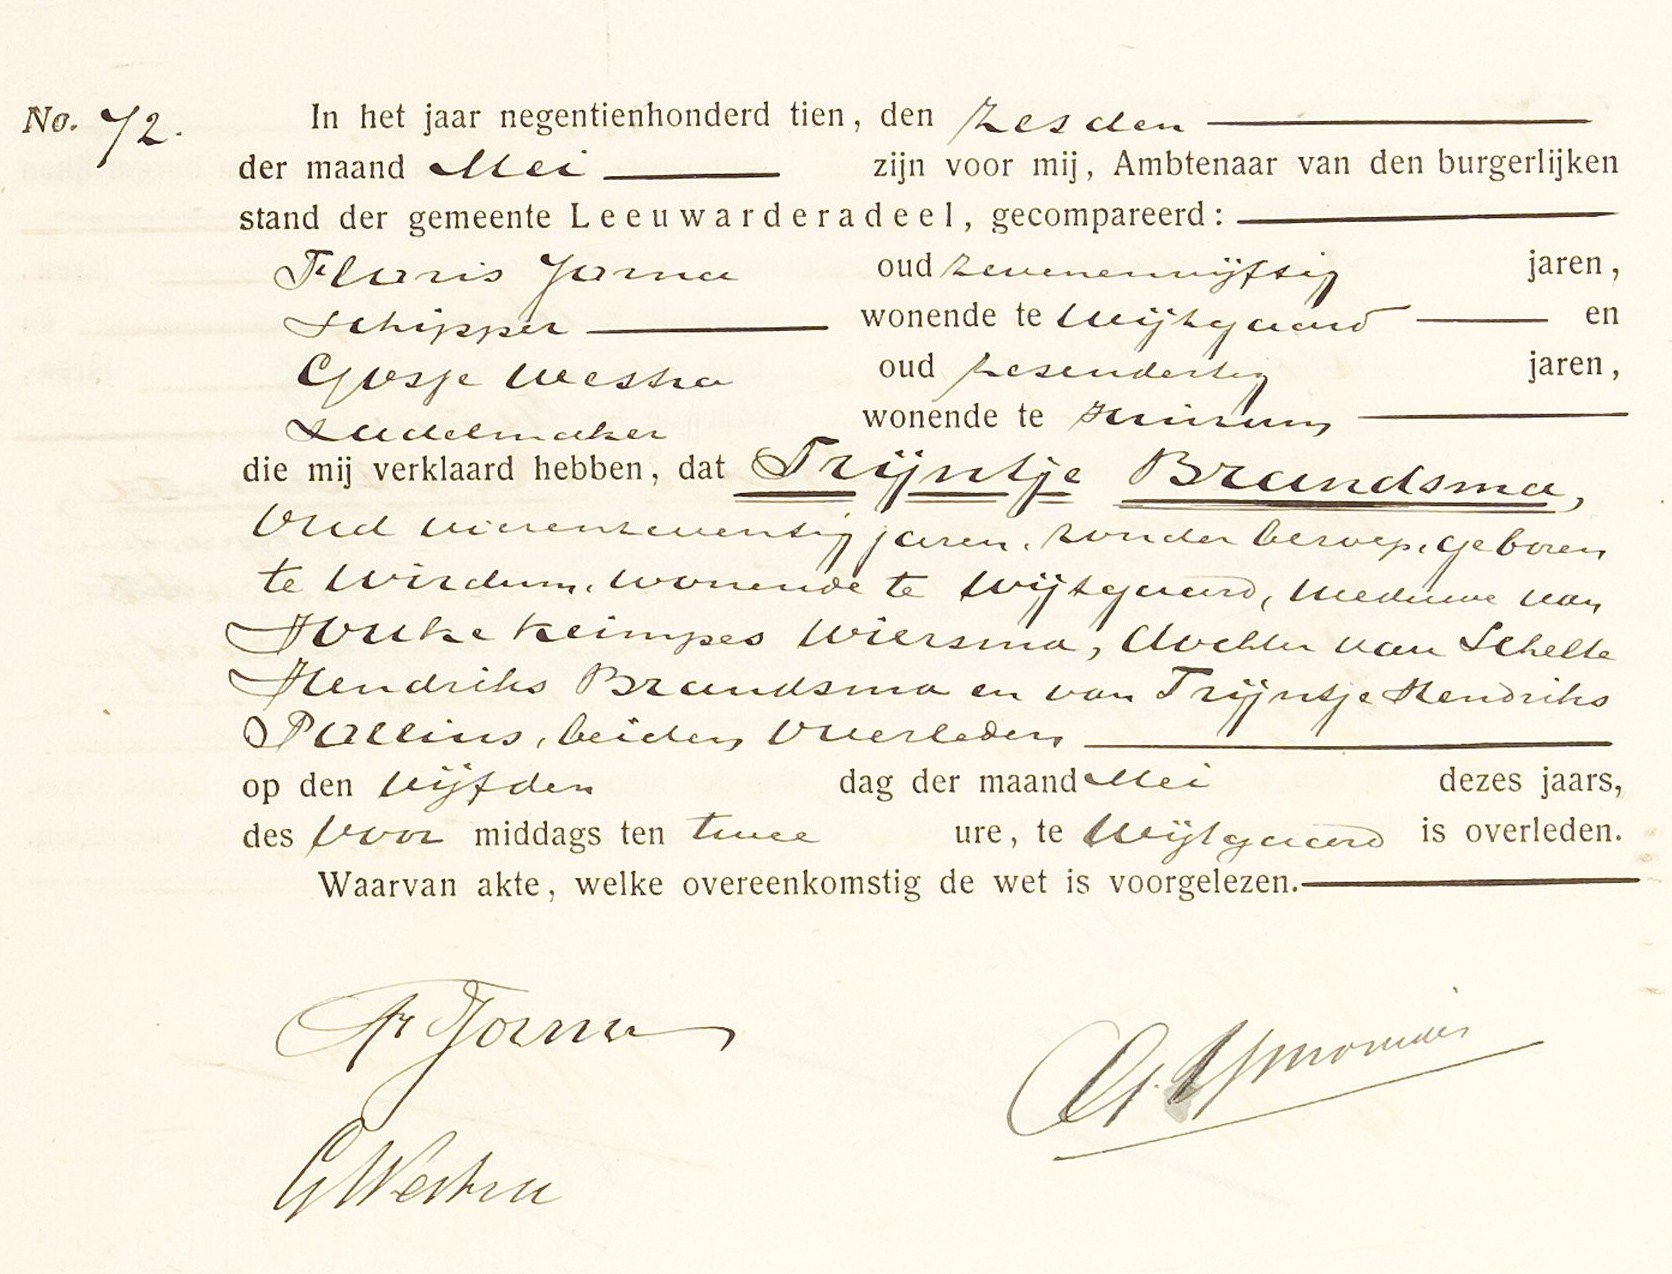 No. 72. In het jaar negentienhonderd tien, den zesden
der maand Mei zijn voor mij, Ambtenaar van den burgerlijken
stand der gemeente Leeuwarderadeel, gecompareerd:
Floris Jorna oud zevenenvijftig jaren,
Schipper wonende te Wijtgaard en
Gosse Westra oud zesendertig jaren,
Zadelmaker wonende te Huizum
die mij verklaard hebben, dat Trijntje Brandsma,
oud vierenzeventig jaren, zonder beroep, geboren
te Wirdum, wonende te Wijtgaard, weduwe van
Jouke Keimpes Wiersma, dochter van Schelte
Hendriks Brandsma en van Trijntje Hendriks
Pallius, beiden overleden
op den vijfden dag der maand Mei dezes jaars,
des voor middags ten twee ure, te Wijtgaard is overleden.
Waarvan akte, welke overeenkomstig de wet is voorgelezen.
Fr Jorna
G Westra